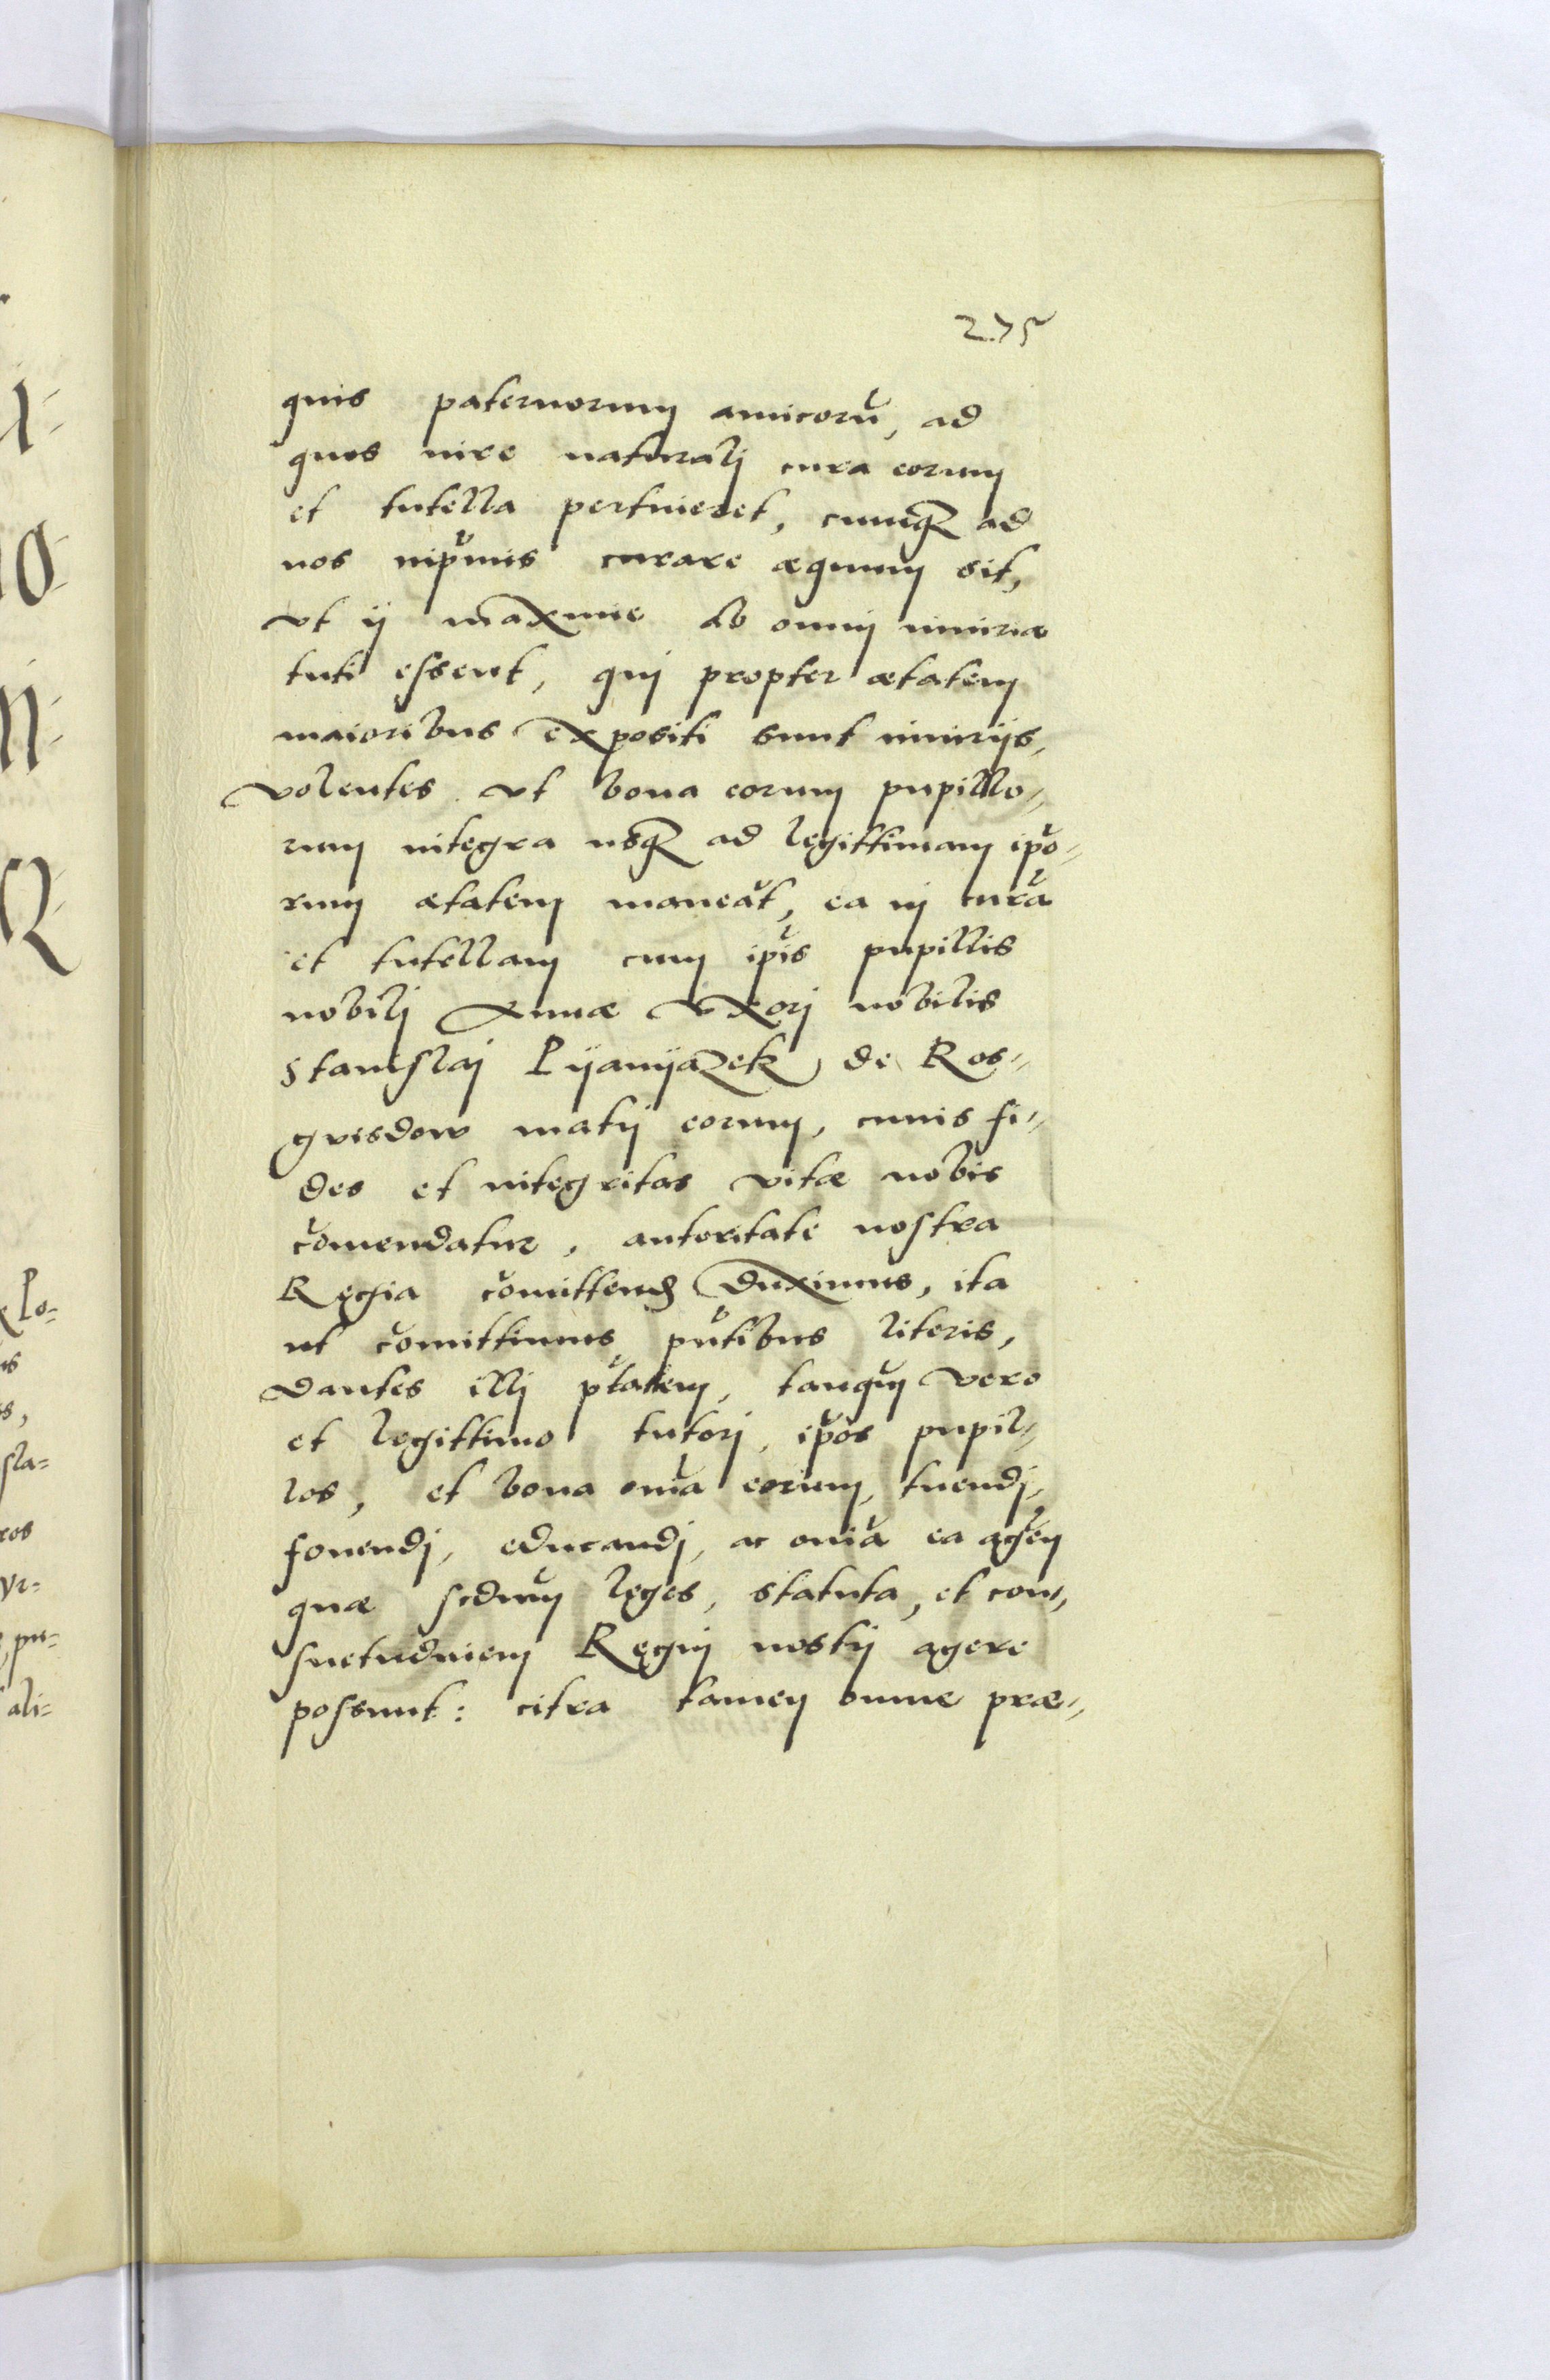 275
quis paternorum amicorū, ad
quos iure naturalj cura eorum
et tutella pertineret, cumq₃ ad
nos inpřmis curare æquum sit,
vt ij maxime ab omnj iniuria
tuti essent, quj propter ætatem
maioribus expositi sunt iniurijs,
volentes vt bona eorum pupillo-
rum integra usq₃ ad legittimam ip̄o-
rum ætatem maneāt, ea in curā
et tutellam cum ip̄is pupillis
nobilj Annæ vxorj nobilis
Stanislaj Pijanijazek de Ros-
gvisdow matrj eorum, cuius fi-
des et integritas vitæ nobis
com̄endatur, autoritate nostra
Regia com̄ittend₃ duximus, ita
ut com̄ittimus pn̄tibus literis,
dantes illj ptātem, tanqm̄ vero
et legittimo tutorj, ip̄os pupil-
los, et bona om̄ia eorum, tuendj,
fouendj, educandj, ac om̄ia ea agēn
quæ scdum̄ leges, statuta, et con-
suetudinem Regnj nostrj agere
possunt: citra tamen omne præ-
Q
Lo-
s,
sla-
ros
yr-
pu-
ali-